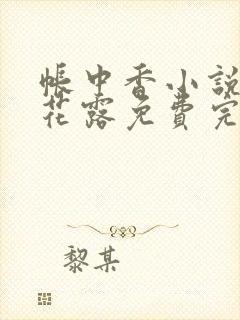 帳中香小說
花露免費完
黎某